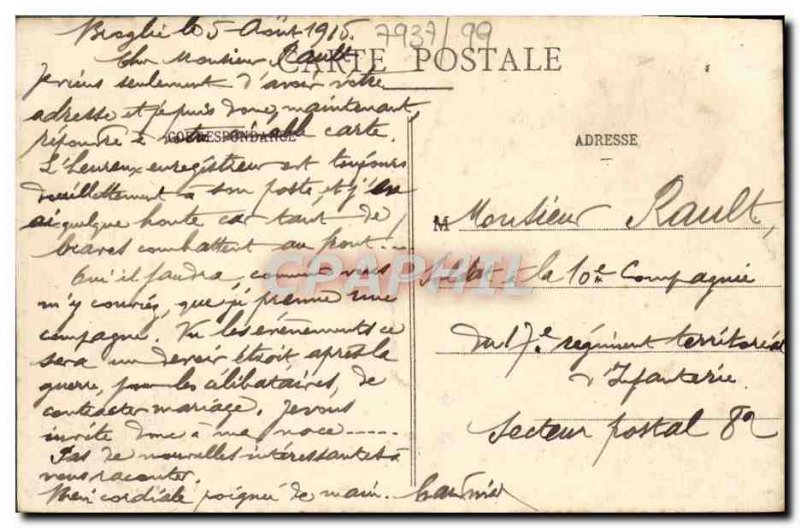 Broglie le 5 Août 1915.
7937/99
Cher Monsieur Rault
CARTE POSTALE
Je viens seulement d'avoir votre
adresse et je puis donc, maintenant,
répondre à votre aimable carte.
CORRESPONDANCE
L'heureux enregistreur est toujours
douillettement à son poste, et j'en
ai quelque honte car tant de
braves combattent au front...
Qu'il faudra, comme vous
m'y conviez, que je prenne une
compagne. Vu les événements ce
sera un devoir étroit après la
guerre, pour les célibataires, de
contracter mariage. Je vous
invite donc à ma noce.....
Pas de nouvelles intéressantes à
vous raconter.
Bien cordiale poignée de main.
ADRESSE
M Monsieur Rault,
Soldat à la 10e Compagnie
du 17e régiment territorial
d'Infanterie
Secteur postal 82
CPAPHIL